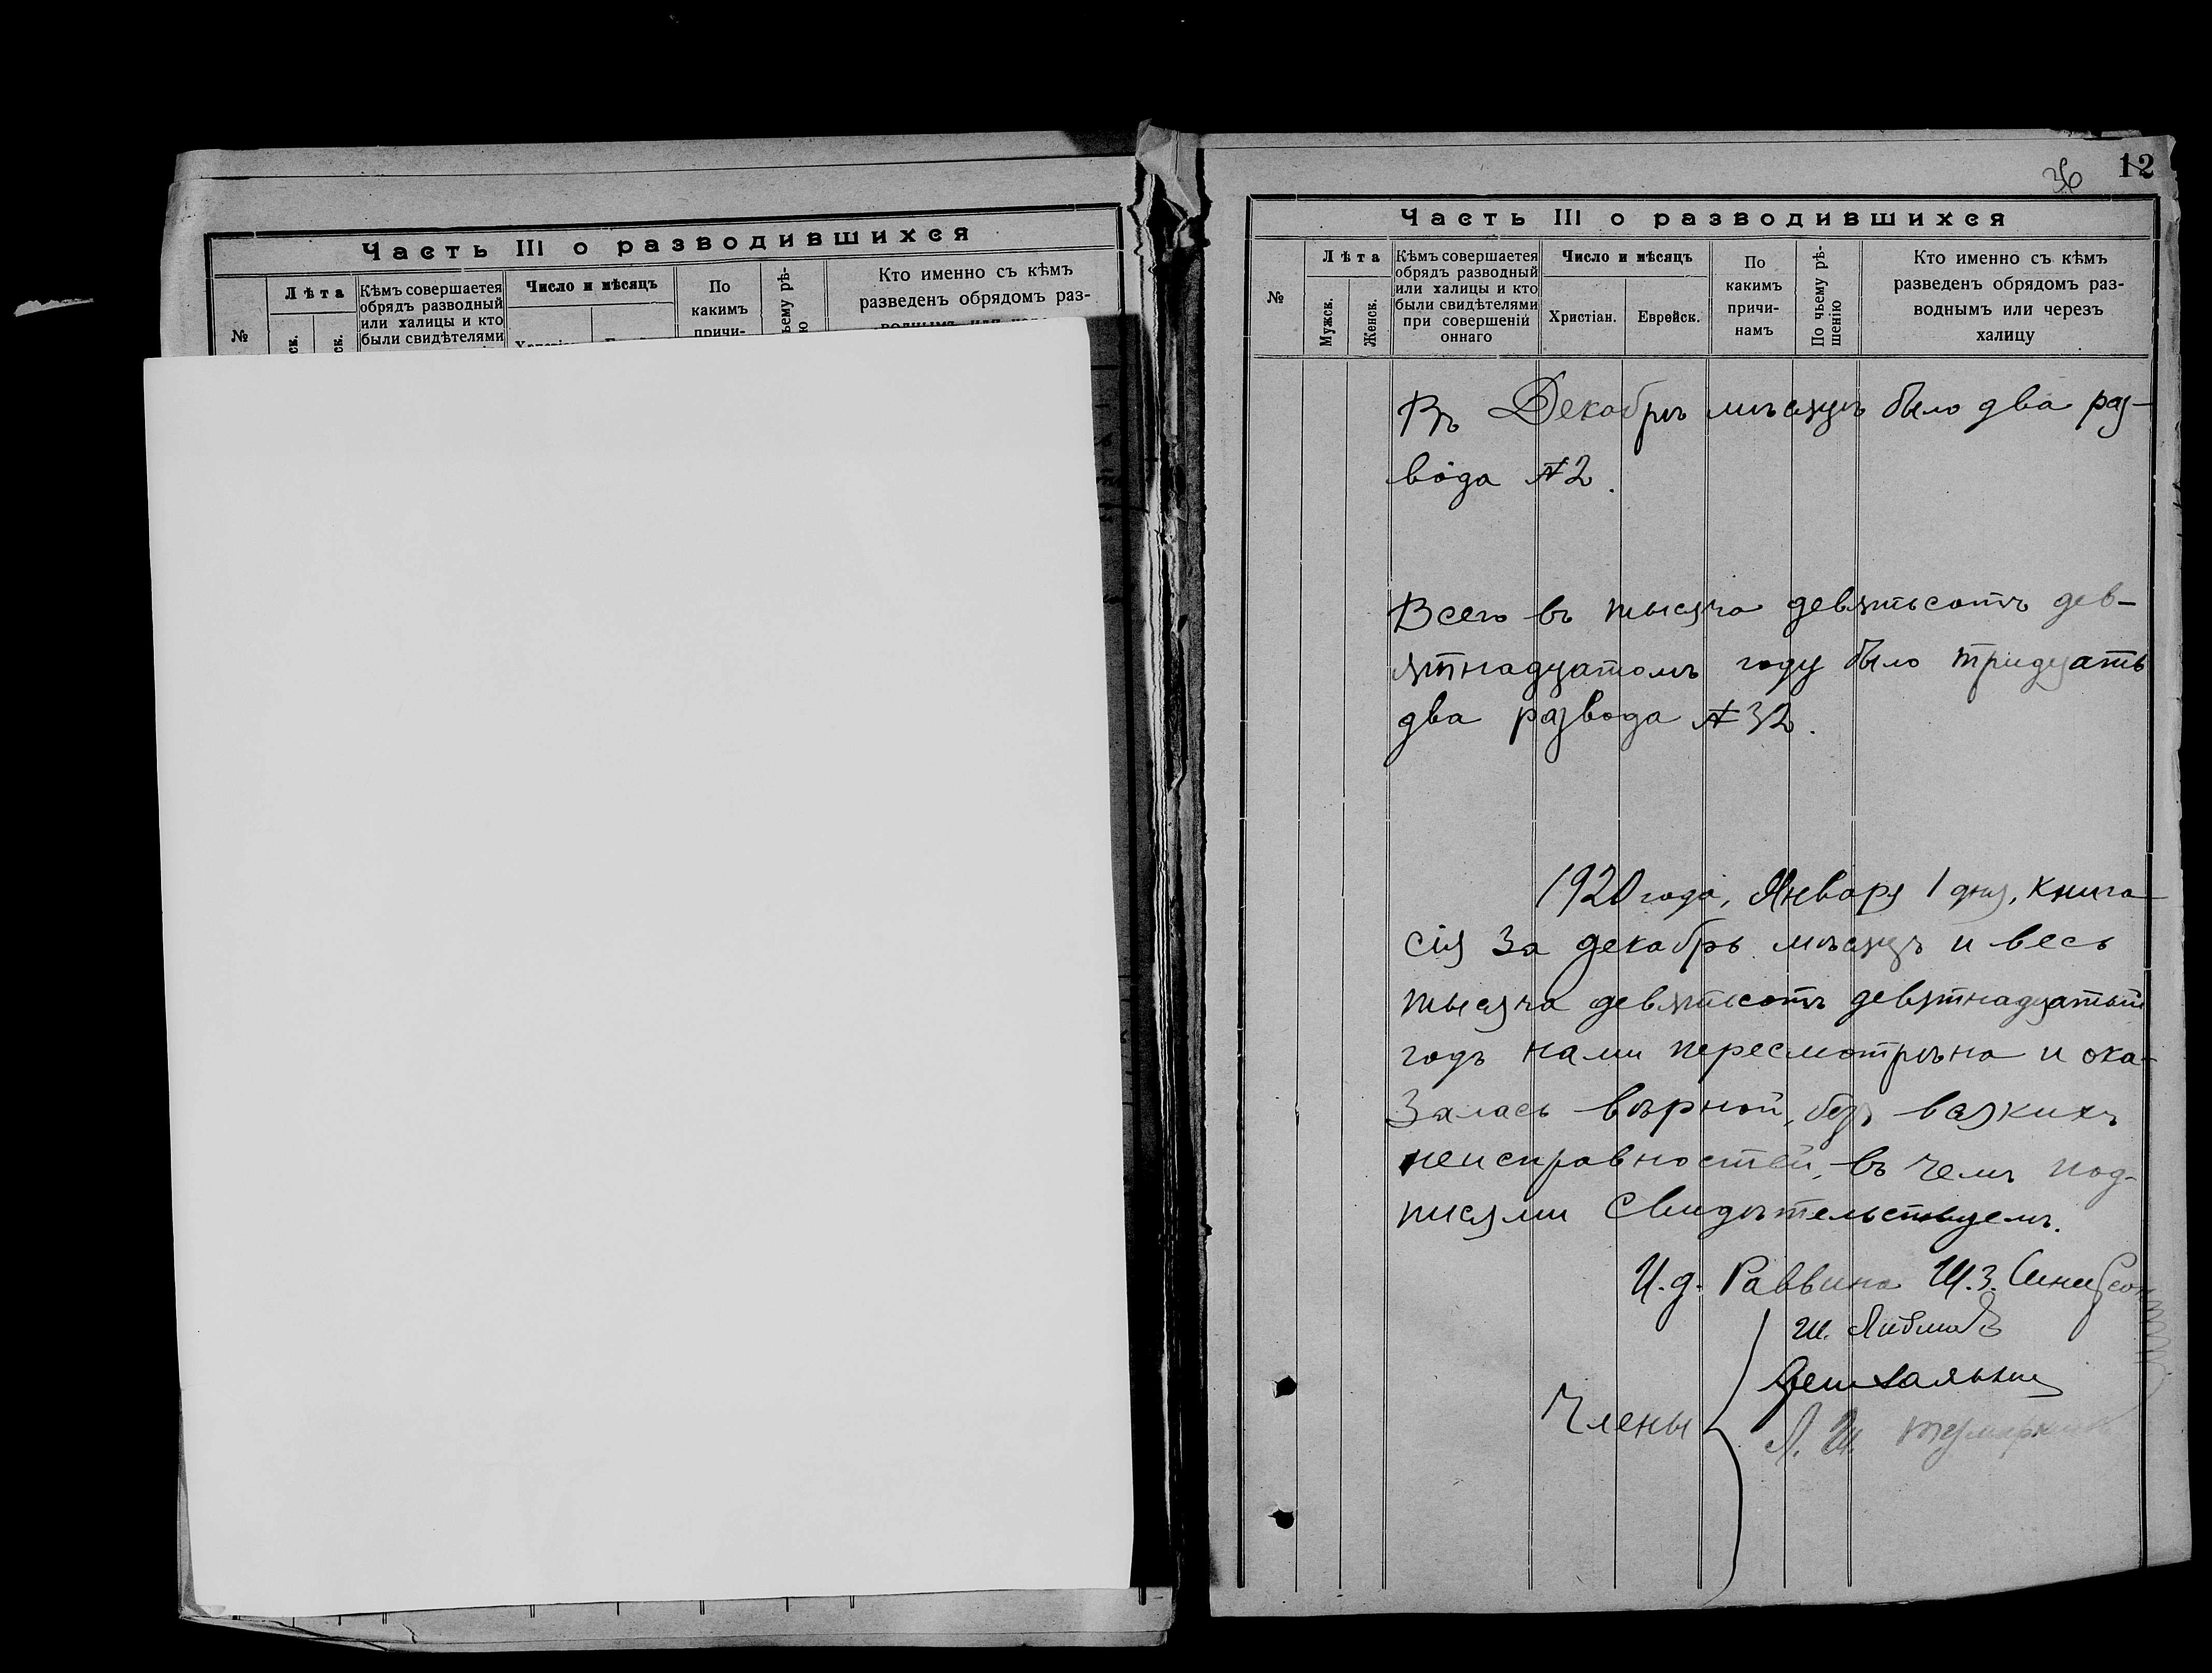 Часть III о разводившихся
№
Лѣта
Кѣмъ совершается
обрядъ разводный
или халицы и кто
были свидѣтелями
Число и мѣсяцъ
По
какимъ
причи-
Кто именно съ кѣмъ
разведенъ обрядомъ раз-
36
12
Часть III о разводившихся
№
Лѣта
Мужск.
Женск.
Кѣмъ совершается
обрядъ разводный
или халицы и кто
были свидѣтелями
при совершеніи
оннаго
Число и мѣсяцъ
Христіан.
Еврейск.
По
какимъ
причи-
намъ
По чьему рѣ-
шенію
Кто именно съ кѣмъ
разведенъ обрядомъ раз-
воднымъ или черезъ
халицу
Въ Декабрѣ мѣсяцѣ было два раз-
вода №2.
Всего въ тысяча девятьсотъ дев-
ятнадцатомъ году было тридцать
два развода №32.
1920 года, Января 1 дня, книга
сія за декабрь мѣсяцъ и весь
тысяча девятьсотъ девятнадцатый
годъ нами пересмотрѣна и ока-
залась вѣрной, безъ всякихъ
неисправностей, въ чемъ под-
писями свидѣтельствуемъ.
И.д. Раввина Ш.З.
Ш.
Члены
Л. Ш.